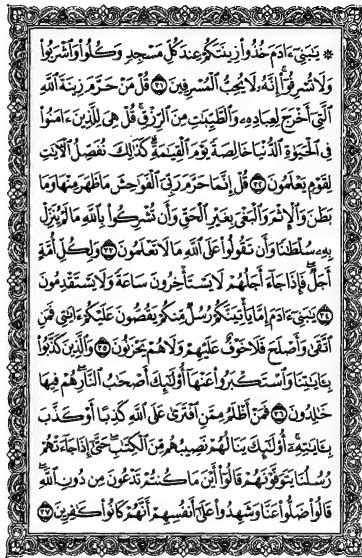 ۞ يَٰبَنِىٓ ءَادَمَ خُذُوا۟ زِينَتَكُمْ عِندَ كُلِّ مَسْجِدٍ وَكُلُوا۟ وَٱشْرَبُوا۟
وَلَا تُسْرِفُوٓا۟ إِنَّهُۥ لَا يُحِبُّ ٱلْمُسْرِفِينَ ٣١ قُلْ مَنْ حَرَّمَ زِينَةَ ٱللَّهِ
ٱلَّتِىٓ أَخْرَجَ لِعِبَادِهِۦ وَٱلطَّيِّبَٰتِ مِنَ ٱلرِّزْقِ قُلْ هِىَ لِلَّذِينَ ءَامَنُوا۟
فِى ٱلْحَيَوٰةِ ٱلدُّنْيَا خَالِصَةً يَوْمَ ٱلْقِيَٰمَةِ كَذَٰلِكَ نُفَصِّلُ ٱلْءَايَٰتِ
لِقَوْمٍ يَعْلَمُونَ ٣٢ قُلْ إِنَّمَا حَرَّمَ رَبِّىَ ٱلْفَوَٰحِشَ مَا ظَهَرَ مِنْهَا وَمَا
بَطَنَ وَٱلْإِثْمَ وَٱلْبَغْىَ بِغَيْرِ ٱلْحَقِّ وَأَن تُشْرِكُوا۟ بِٱللَّهِ مَا لَمْ يُنَزِّلْ
بِهِۦ سُلْطَٰنًا وَأَن تَقُولُوا۟ عَلَى ٱللَّهِ مَا لَا تَعْلَمُونَ ٣٣ وَلِكُلِّ أُمَّةٍ
أَجَلٌ فَإِذَا جَآءَ أَجَلُهُمْ لَا يَسْتَأْخِرُونَ سَاعَةً وَلَا يَسْتَقْدِمُونَ
٣٤ يَٰبَنِىٓ ءَادَمَ إِمَّا يَأْتِيَنَّكُمْ رُسُلٌ مِّنكُمْ يَقُصُّونَ عَلَيْكُمْ ءَايَٰتِى فَمَنِ
ٱتَّقَىٰ وَأَصْلَحَ فَلَا خَوْفٌ عَلَيْهِمْ وَلَا هُمْ يَحْزَنُونَ ٣٥ وَٱلَّذِينَ كَذَّبُوا۟
بِـَٔايَٰتِنَا وَٱسْتَكْبَرُوا۟ عَنْهَآ أُو۟لَٰٓئِكَ أَصْحَٰبُ ٱلنَّارِ هُمْ فِيهَا
خَٰلِدُونَ ٣٦ فَمَنْ أَظْلَمُ مِمَّنِ ٱفْتَرَىٰ عَلَى ٱللَّهِ كَذِبًا أَوْ كَذَّبَ
بِـَٔايَٰتِهِۦٓ أُو۟لَٰٓئِكَ يَنَالُهُمْ نَصِيبُهُم مِّنَ ٱلْكِتَٰبِ حَتَّىٰٓ إِذَا جَآءَتْهُمْ
رُسُلُنَا يَتَوَفَّوْنَهُمْ قَالُوٓا۟ أَيْنَ مَا كُنتُمْ تَدْعُونَ مِن دُونِ ٱللَّهِ
قَالُوا۟ ضَلُّوا۟ عَنَّا وَشَهِدُوا۟ عَلَىٰٓ أَنفُسِهِمْ أَنَّهُمْ كَانُوا۟ كَٰفِرِينَ ٣٧